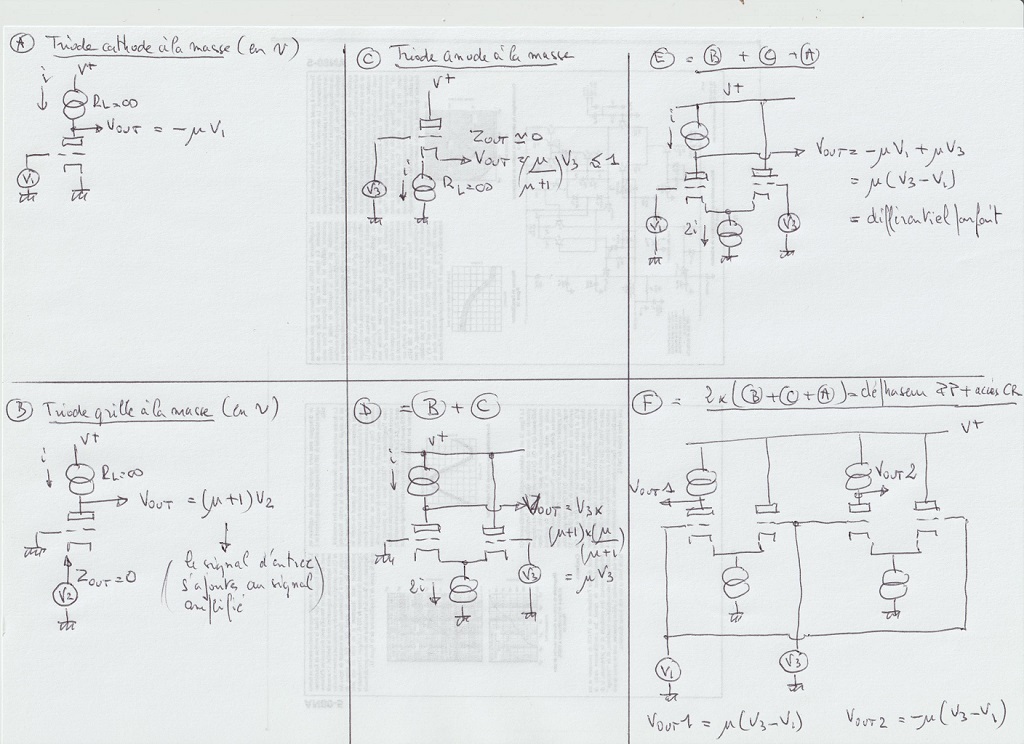 A Triode cathode à la masse (en V)
V+
i
RL=∞
VOUT = -μV1
V1
C Triode anode à la masse
V+
ZOUT ≃ 0
VOUT = (μ/μ+1)V3 ≤ 1
V3
i
RL=∞
E = B + C + A
V+
i
VOUT = -μV1 + μV3
= μ(V3-V1)
= différentiel parfait
V1
2i
V3
B Triode grille à la masse (en V)
V+
i
RL=∞
VOUT = (μ+1)V2
ZOUT=0
V2
(le signal d'entrée
s'ajoute au signal
amplifié)
D = B + C
V+
i
VOUT = V3x
(μ+1)x(μ/(μ+1)
= μV3
2i
V3
F = 2x(B+C+A)= déphaseur PP + accès CR
V+
VOUT1
VOUT2
V1
V3
VOUT1 = μ(V3-V1)
VOUT2 = -μ(V3-V1)